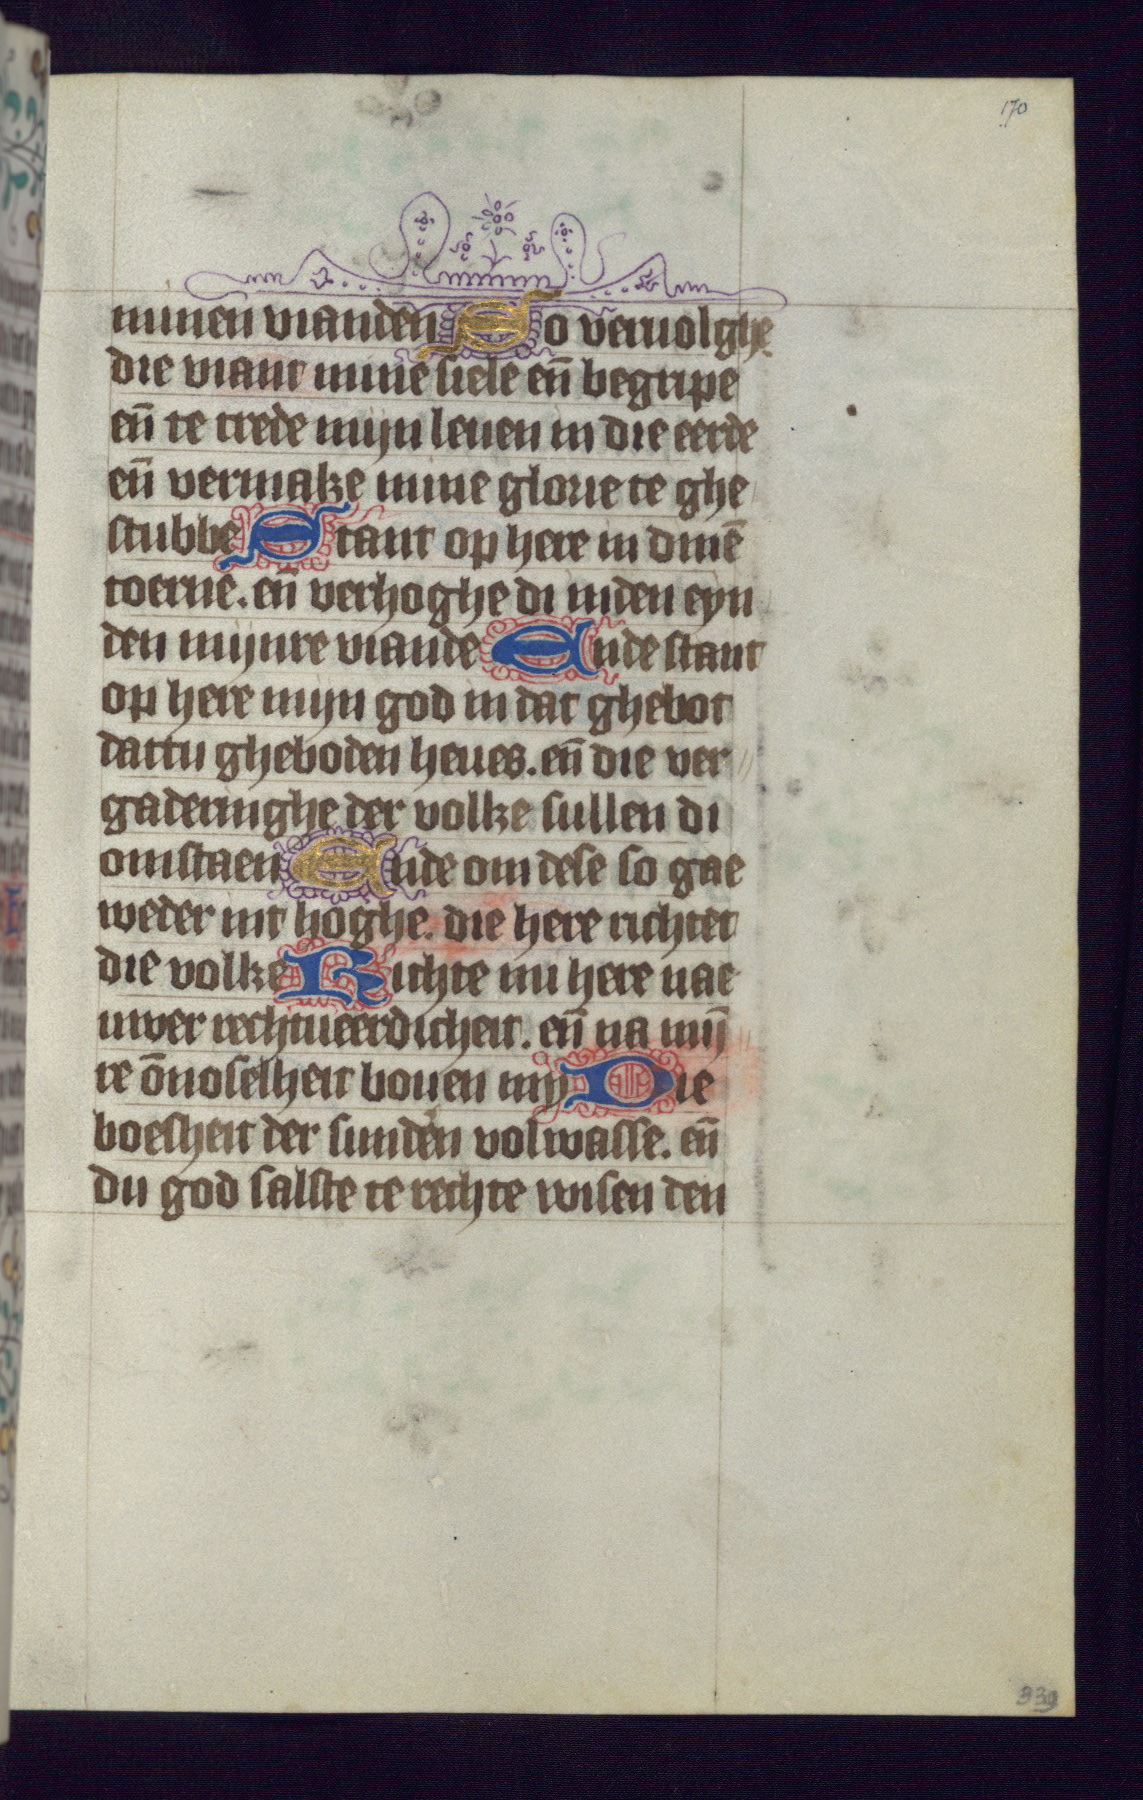 170
minen vianden So veruolghe
die viant mine siele en̄ begripe
en̄ te trede mijn leuen in die eerde
en̄ vermake mine glorie te ghe
stubbe Stant op here in dinē
toerne. en̄ verhoghe di inden eyn
den mijnre viande Ende stant
op here mijn god in dat ghebot
dattu gheboden heues. en̄ die ver
gaderinghe der volke sullen di
omstaen Ende om dese so gae
weder int hoghe. die here richtet
die volke Richte mi here nae
mijnre rechtueerdicheit. en̄ na mijn
re ōnoselheit bouen my Die
boesheit der sunden volwasse. en̄
du god salste te rechte wisen den
339